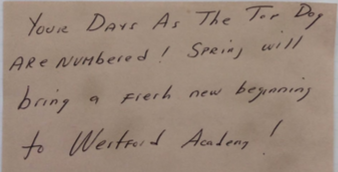 Your Days As The Top Dog
Are Numbered! Spring will
bring a fresh new beginning
to Westford Academy!